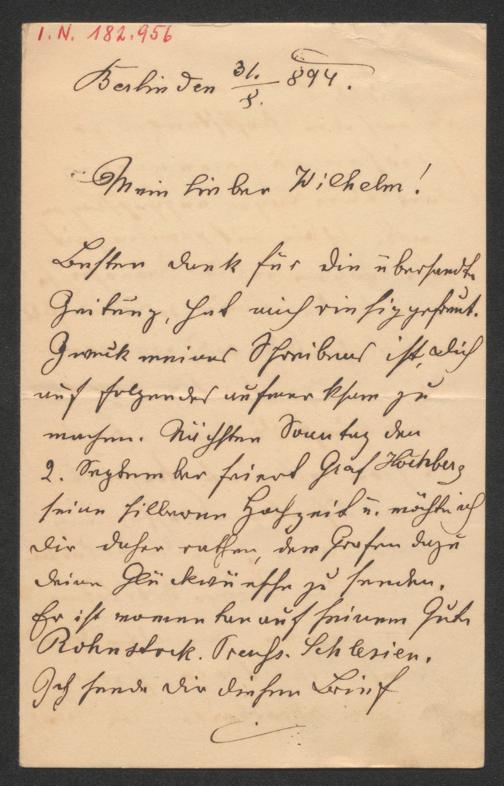 I. N. 182.956
Berlin den 31./8. 894.
Mein lieber Wilhelm!
Besten Dank für die übersandte
Zeitung, hat mich riesig gefreut.
Zweck meines Schreibens ist, dich
auf folgendes aufmerksam zu
machen. Nächsten Sonntag den
2. September feiert Graf Hochberg
seine silberne Hochzeit u. möchte ich
dir daher rathen, dem Grafen dazu
deine Glückwünsche zu senden.
Er ist momentan auf seinem Gute
Rohnstock. Preuss. Schlesien.
Ich sende dir diesen Brief